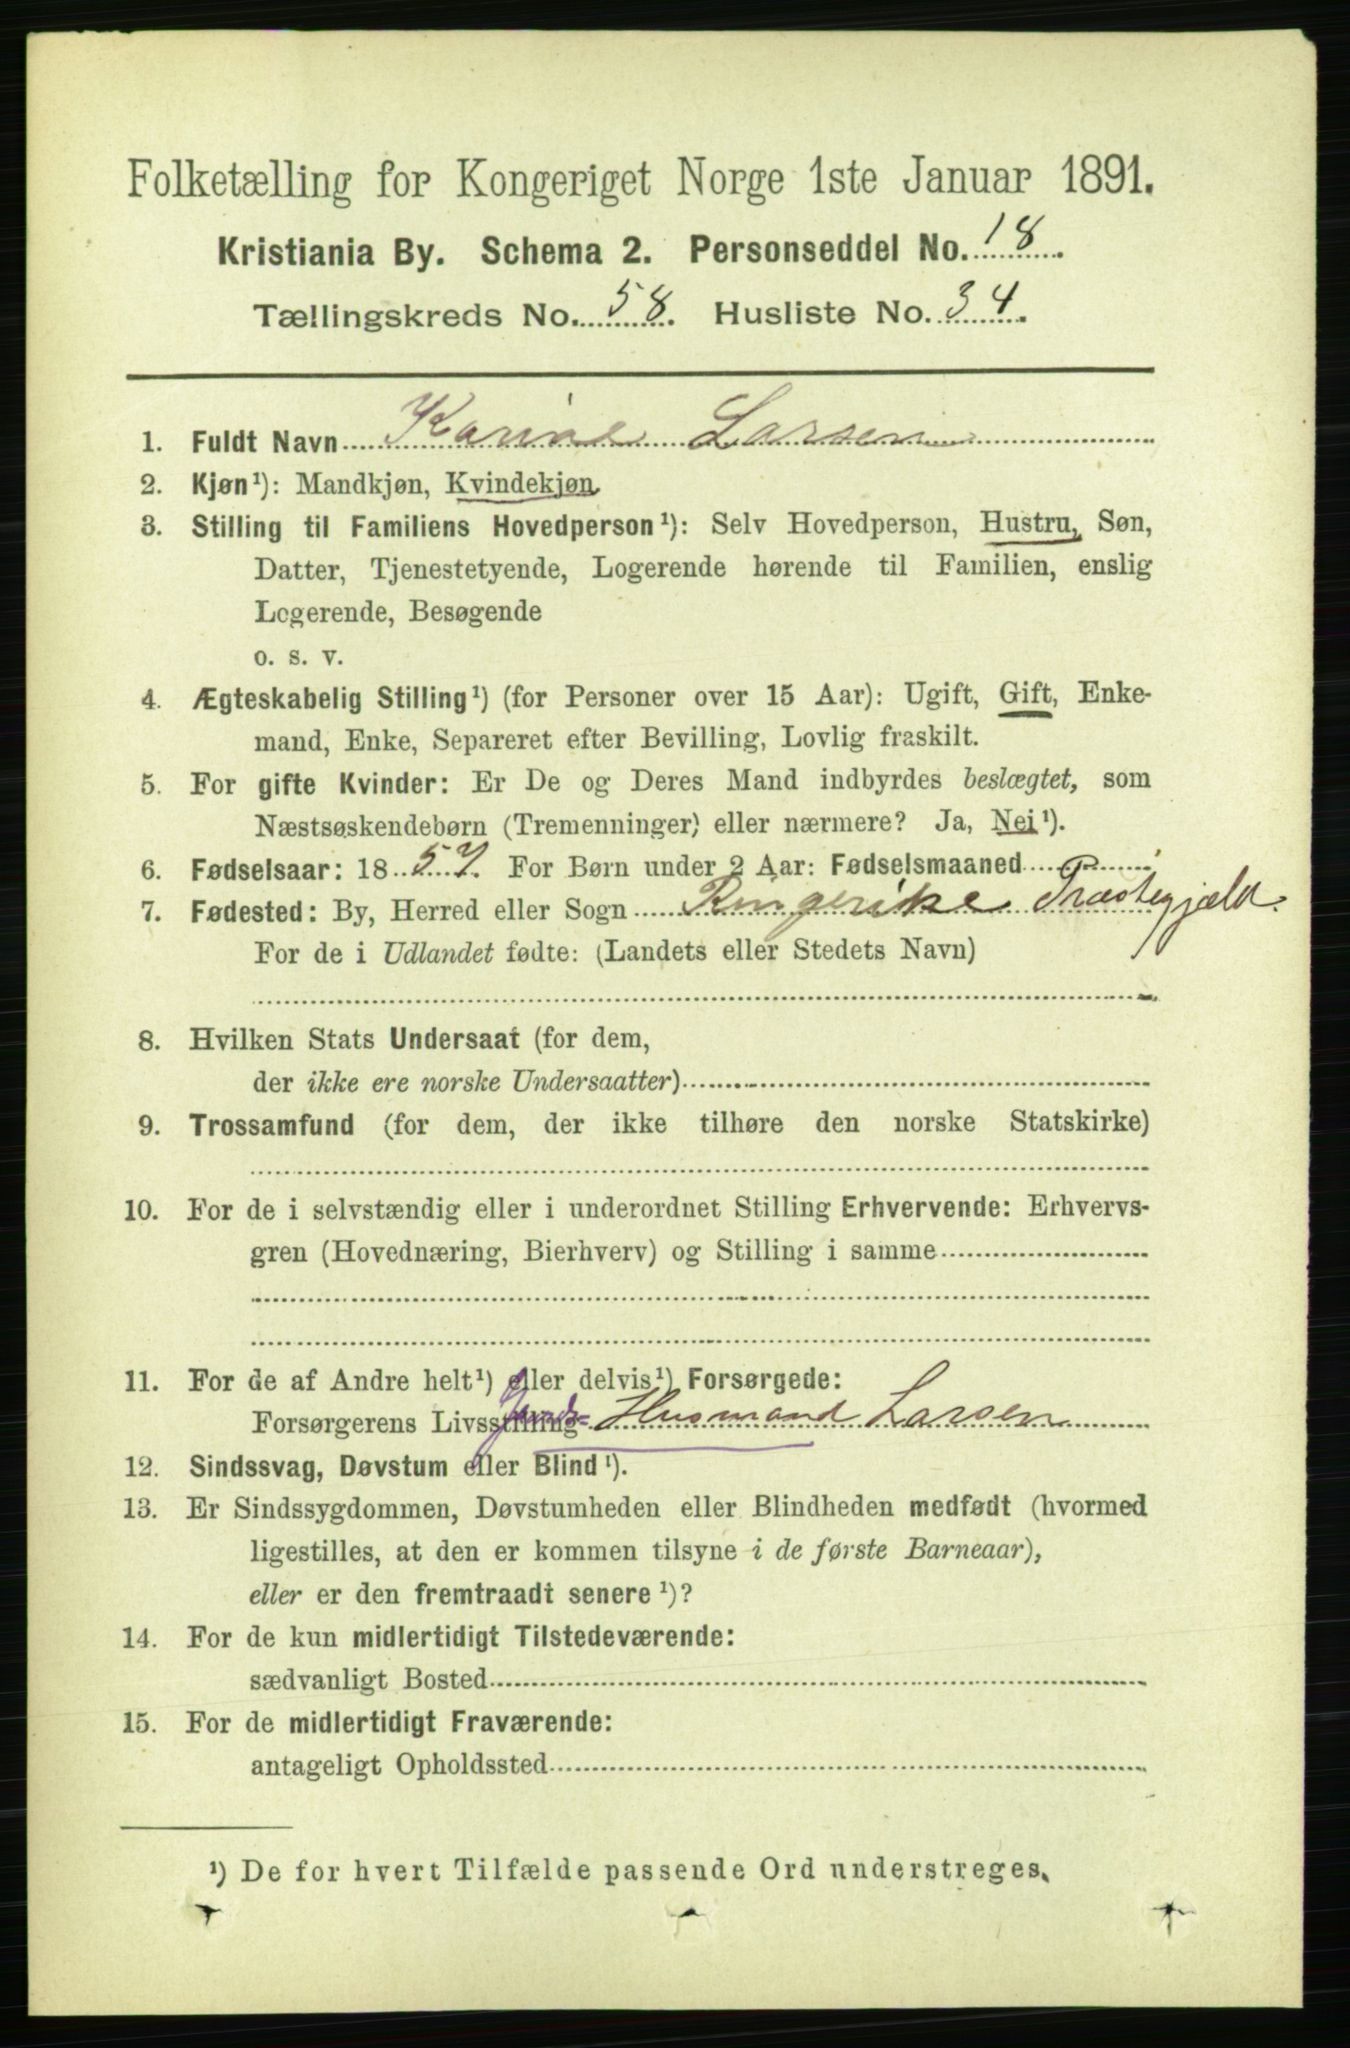 Folketælling for Kongeriget Norge 1ste Januar 1891.
Kristiania By. Schema 2. Personseddel No. 18.
Tællingskreds No. 58. Husliste No. 34.
1. Fuldt Navn Karine Larsen
2. Kjøn¹): Mandkjøn, Kvindekjøn
3. Stilling til Familiens Hovedperson¹): Selv Hovedperson, Hustru, Søn,
Datter, Tjenestetyende, Logerende hørende til Familien, enslig
Logerende, Besøgende
o. s. v.
4. Ægteskabelig Stilling¹) (for Personer over 15 Aar): Ugift, Gift, Enke-
mand, Enke, Separeret efter Bevilling, Lovlig fraskilt.
5. For gifte Kvinder: Er De og Deres Mand indbyrdes beslægtet, som
Næstsøskendebørn (Tremenninger) eller nærmere? Ja, Nei¹).
6. Fødselsaar: 1857. For Børn under 2 Aar: Fødselsmaaned
7. Fødested: By, Herred eller Sogn Ringerike Præstegjæld.
For de i Udlandet fødte: (Landets eller Stedets Navn)
8. Hvilken Stats Undersaat (for dem,
der ikke ere norske Undersaatter)
9. Trossamfund (for dem, der ikke tilhøre den norske Statskirke)
10. For de i selvstændig eller i underordnet Stilling Erhvervende: Erhvervs-
gren (Hovednæring, Bierhverv) og Stilling i samme
11. For de af Andre helt¹) eller delvis¹) Forsørgede:
Forsørgerens Livsstilling Husmand Larsen
12. Sindssvag, Døvstum eller Blind¹).
13. Er Sindssygdommen, Døvstumheden eller Blindheden medfødt (hvormed
ligestilles, at den er kommen tilsyne i de første Barneaar),
eller er den fremtraadt senere¹)?
14. For de kun midlertidigt Tilstedeværende:
sædvanligt Bosted
15. For de midlertidigt Fraværende:
antageligt Opholdssted
¹) De for hvert Tilfælde passende Ord understreges.